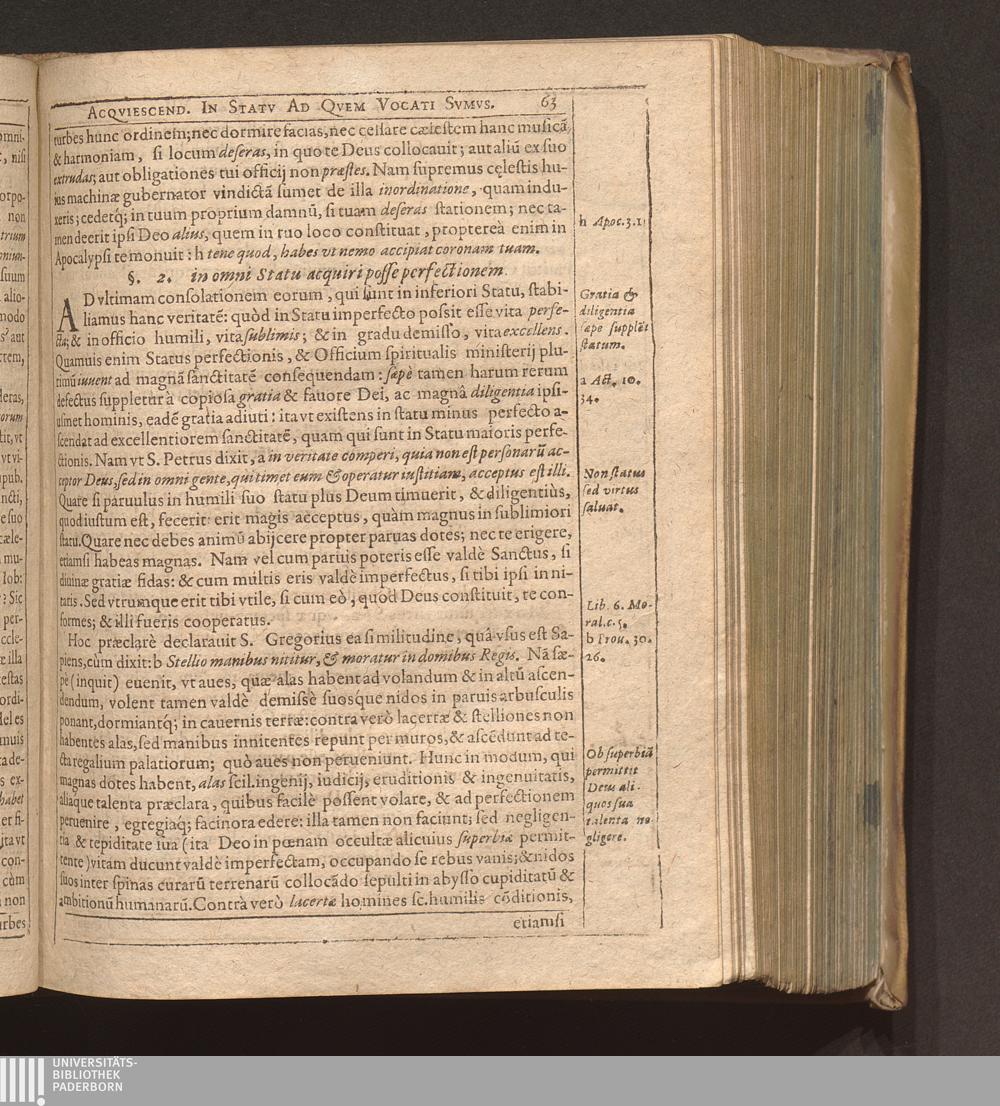 ACQVIESCEND. IN STATV AD QVEM VOCATI SVMVS. 63
turbes hunc ordinem; nec dormire facias, nec ceſſare cæleſtem hanc muſicã,
& harmoniam, ſi locum deſeras, in quo te Deus collocauit; aut aliũ ex ſuo
extrudas; aut obligationes tui officij non præſtes. Nam ſupremus cęleſtis hu-
ius machinæ gubernator vindictã ſumet de illa inordinatione, quam indu-
xeris; cedetq́; in tuum proprium damnũ, ſi tuam deſeras ſtationem; nec ta-
men deerit ipſi Deo alius, quem in tuo loco conſtituat, proptereà enim in
Apocalypſi te monuit: h tene quod, habes vt nemo accipiat coronam tuam.
h Apoc. 3. 1
§. 2. in omni Statu acquiri poſſe perfectionem.
AD vltimam conſolationem eorum, qui ſunt in inferiori Statu, ſtabi-
liamus hanc veritatẽ: quòd in Statu imperfecto poſsit eſſe vita perfe-
cta; & in officio humili, vita ſublimis; & in gradu demiſſo, vita excellens.
Quamuis enim Status perfectionis, & Officium ſpiritualis miniſterij plu-
timũ iuuent ad magnã ſanctitatẽ conſequendam: ſæpè tamen harum rerum
defectus ſuppletur à copioſa gratia & fauore Dei, ac magnâ diligentia ipſi-
uſmet hominis, eadẽ gratia adiuti: ita vt exiſtens in ſtatu minus perfecto a-
ſcendat ad excellentiorem ſanctitatẽ, quam qui ſunt in Statu maioris perfe-
ctionis. Nam vt S. Petrus dixit, a in veritate comperi, quia non eſt perſonarũ ac-
ceptor Deus, ſed in omni gente, qui timet eum & operatur iuſtitiam, acceptus eſt illi.
Quare ſi paruulus in humili ſuo ſtatu plus Deum timuerit, & diligentiùs,
quod iuſtum eſt, fecerit: erit magis acceptus, quàm magnus in ſublimiori
ſtatu. Quare nec debes animũ abijcere propter paruas dotes; nec te erigere,
etiamſi habeas magnas. Nam vel cum paruis poteris eſſe valdè Sanctus, ſi
diuinæ gratiæ fidas: & cum multis eris valdè imperfectus, ſi tibi ipſi in ni-
taris. Sed vtrumque erit tibi vtile, ſi cum eò, quod Deus conſtituit, te con-
formes; & illi fueris cooperatus.
Gratia &
diligentia
ſæpe ſupplẽt
ſtatum.
a Act. 10.
34.
Non ſtatus
ſed virtus
ſaluat.
Hoc præclarè declarauit S. Gregorius ea ſimilitudine, quâ vſus eſt Sa-
piens, cùm dixit: b Stellio manibus nititur, & moratur in domibus Regis. Nã ſæ-
pè (inquit) euenit, vt aues, quæ alas habent ad volandum & in altũ aſcen-
dendum, volent tamen valdè demiſsè ſuosque nidos in paruis arbuſculis
ponant, dormiantq́; in cauernis terræ: contra verò lacertæ & ſtelliones non
habentes alas, ſed manibus innitentes repunt per muros, & aſcẽdunt ad te-
cta regalium palatiorum; quò aues non perueniunt. Hunc in modum, qui
magnas dotes habent, alas ſcil. ingenij, iudicij, eruditionis & ingenuitatis,
aliaque talenta præclara, quibus facilè poſſent volare, & ad perfectionem
peruenire, egregiaq́; facinora edere: illa tamen non faciunt; ſed negligen-
tia & tepiditate ſua (ita Deo in pœnam occultæ alicuius ſuperbiæ permit-
tente) vitam ducunt valdè imperfectam, occupando ſe rebus vanis; & nidos
ſuos inter ſpinas curarũ terrenarũ collocãdo ſepulti in abyſſo cupiditatũ &
ambitionũ humanarũ. Contrà verò lacertæ homines ſc. humilis cõditionis,
etiamſi
Lib. 6. Mo-
ral. c. 5.
b Prou. 30.
26.
Ob ſuperbiã
permittit
Deus ali-
quos ſua
talenta ne-
gligere.
UNIVERSITÄTS-
BIBLIOTHEK
PADERBORN